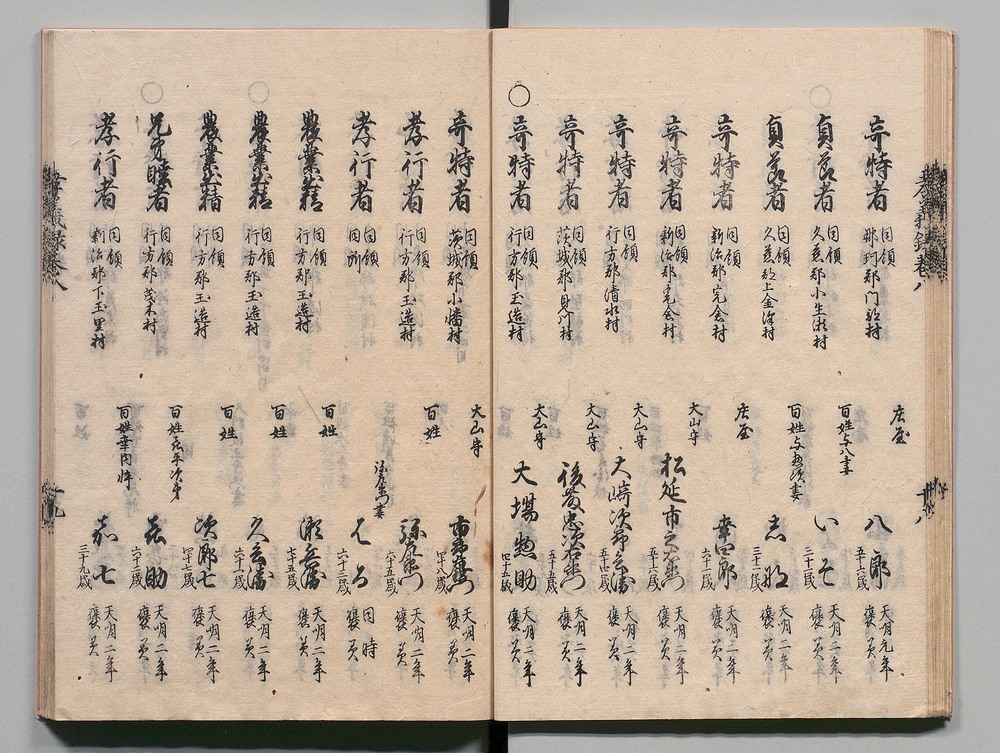 奇特者 同領 那珂郡門部村 庄屋 八郎 五十六歳 天明元年 褒美
○貞節者 同領 久慈郡小生瀬村 百姓与八妻 いそ 三十一歳 天明二年 褒美
貞節者 同領 久慈郡上金沢村 百姓与惣次妻 志那 三十二歳 天明二年 褒美
奇特者 同領 新治郡宍倉村 庄屋 幸四郎 六十一歳 天明二年 褒美
奇特者 同領 新治郡宍倉村 大山守 松延市之衛門 五十六歳 天明二年 褒美
奇特者 同領 行方郡清水村 大山守 大崎次郎兵衛 天明二年 褒美
奇特者 同領 茨城郡 大山守 後藤忠次衛門 五十五歳 天明二年 褒美
○奇特者 同領 行方郡玉造村 大山守 大場惣助 四十五歳 天明二年 褒美
孝義録巻八 十八
奇特者 同領 茨城郡小幡村 大山守 四十八歳 天明二年 褒美
孝行者 同領 行方郡玉造村 百姓 弥左衛門 六十五歳 天明二年 褒美
孝行者 同領 同所 弥左衛門妻 はる 六十三歳 同時 褒美
農業出精 同領 行方郡玉造村 百姓 瀬兵衛 七十五歳 天明二年 褒美
○農業出精 同領 行方郡玉造村 百姓 久兵衛 六十八歳 天明二年 褒美
農業出精 同領 行方郡玉造村 百姓 次郎七 四十七歳 天明二年 褒美
○兄弟睦者 同領 行方郡茂木村 百姓 喜助 六十三歳 天明二年 褒美
孝行者 同領 新治郡下玉里村 百姓幸内忰 嘉七 三十九歳 天明二年 褒美
孝義録巻八 十九